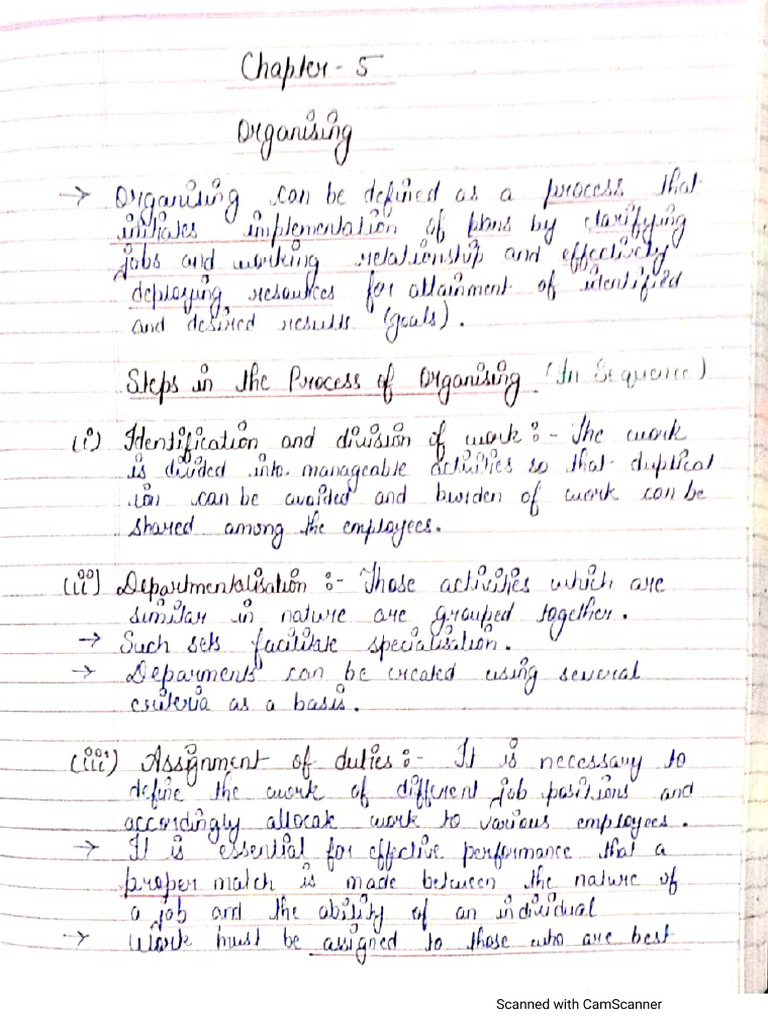 Chapter - 5
Organising
→ Organising can be defined as a process that
initiates implementation of plans by clarifying
jobs and working relationship and effectively
deploying resources for attainment of identified
and desired results (goals).
Steps in the Process of Organising (In Sequence)
(i) Identification and division of work :- The work
is divided into manageable activities so that duplicat
ion can be avoided and burden of work can be
shared among the employees.
(ii) Departmentalisation :- Those activities which are
similar in nature are grouped together.
→ Such sets facilitate specialisation.
→ Deparments can be created using several
criteria as a basis.
(iii) Assignment of duties :- It is necessary to
define the work of different job positions and
accordingly allocate work to various employees.
→ It is essential for effective performance that a
proper match is made between the nature of
a job and the ability of an individual
→ Work must be assigned to those who are best
Scanned with CamScanner